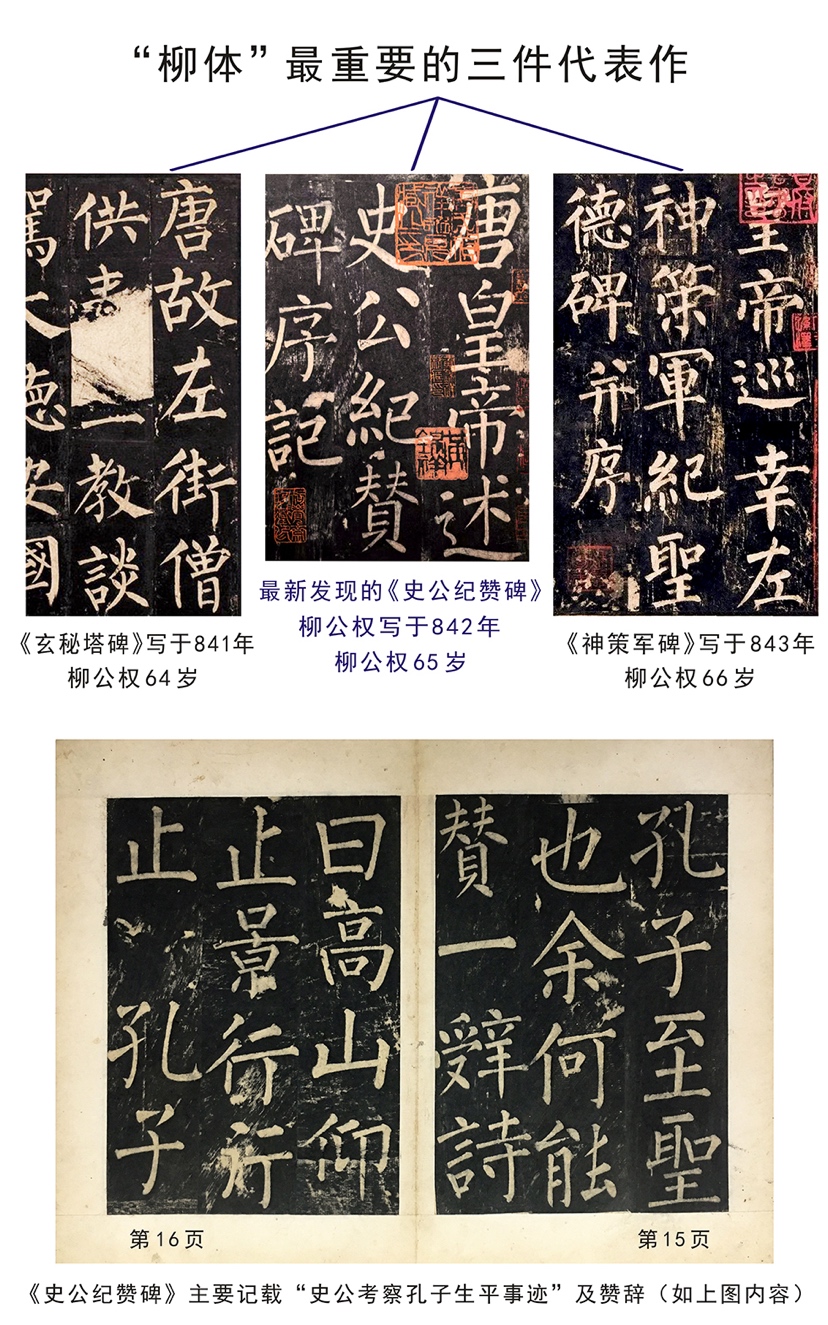 “柳体”最重要的三件代表作
唐故左街僧
供表一教談
駕大德安國
唐皇帝述
史公紀赞
碑序記
皇帝巡幸左
神策軍紀聖
德碑并序
《玄秘塔碑》写于841年
柳公权64岁
最新发现的《史公纪赞碑》
柳公权写于842年
柳公权65岁
《神策军碑》写于843年
柳公权66岁
孔子至聖
也余何能
赞一辭詩
曰高山仰
止景行行
止孔子
第16页
第15页
《史公纪赞碑》主要记载“史公考察孔子生平事迹”及赞辞（如上图内容）